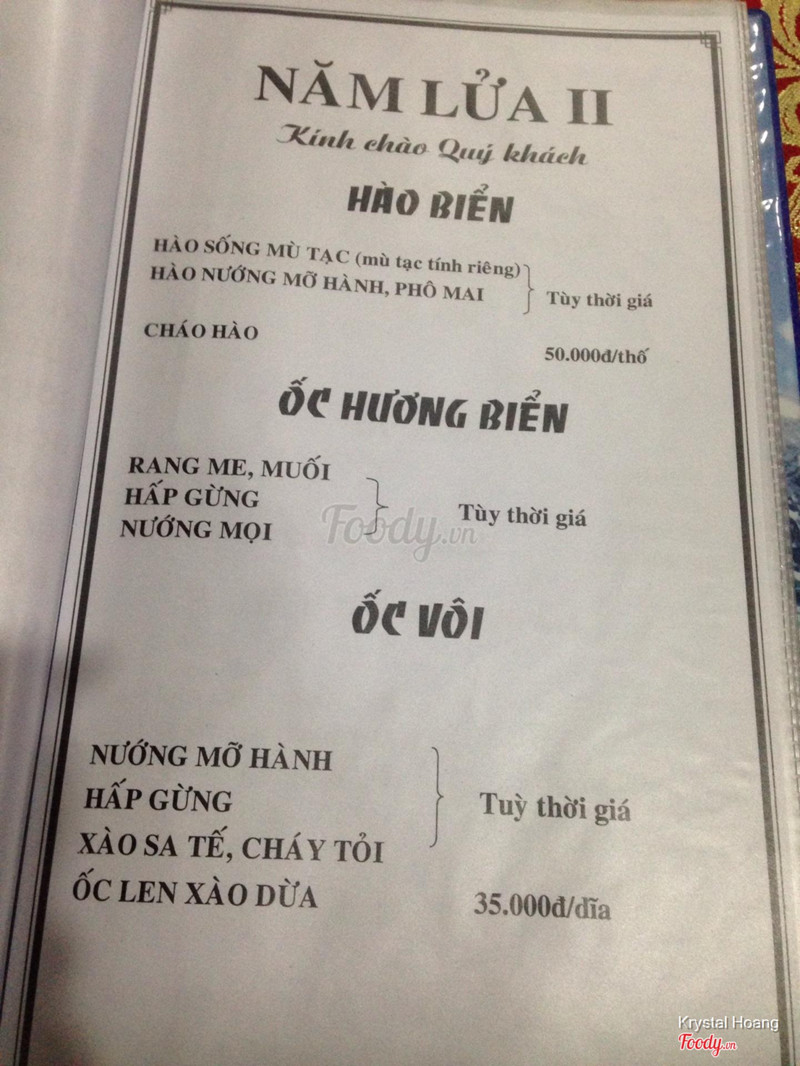 NĂM LỬA II
Kính chào Quý khách
HÀO BIỂN
HÀO SỐNG MÙ TẠC (mù tạc tính riêng)
HÀO NƯỚNG MỠ HÀNH, PHÔ MAI
Tùy thời giá
CHÁO HÀO
50.000đ/thố
ỐC HƯƠNG BIỂN
RANG ME, MUỐI
HẤP GỪNG
NƯỚNG MỌI
Tùy thời giá
Foody.vn
ỐC VÔI
NƯỚNG MỠ HÀNH
HẤP GỪNG
Tuỳ thời giá
XÀO SA TẾ, CHÁY TỎI
ỐC LEN XÀO DỪA
35.000đ/dĩa
Krystal Hoang
Foody.vn